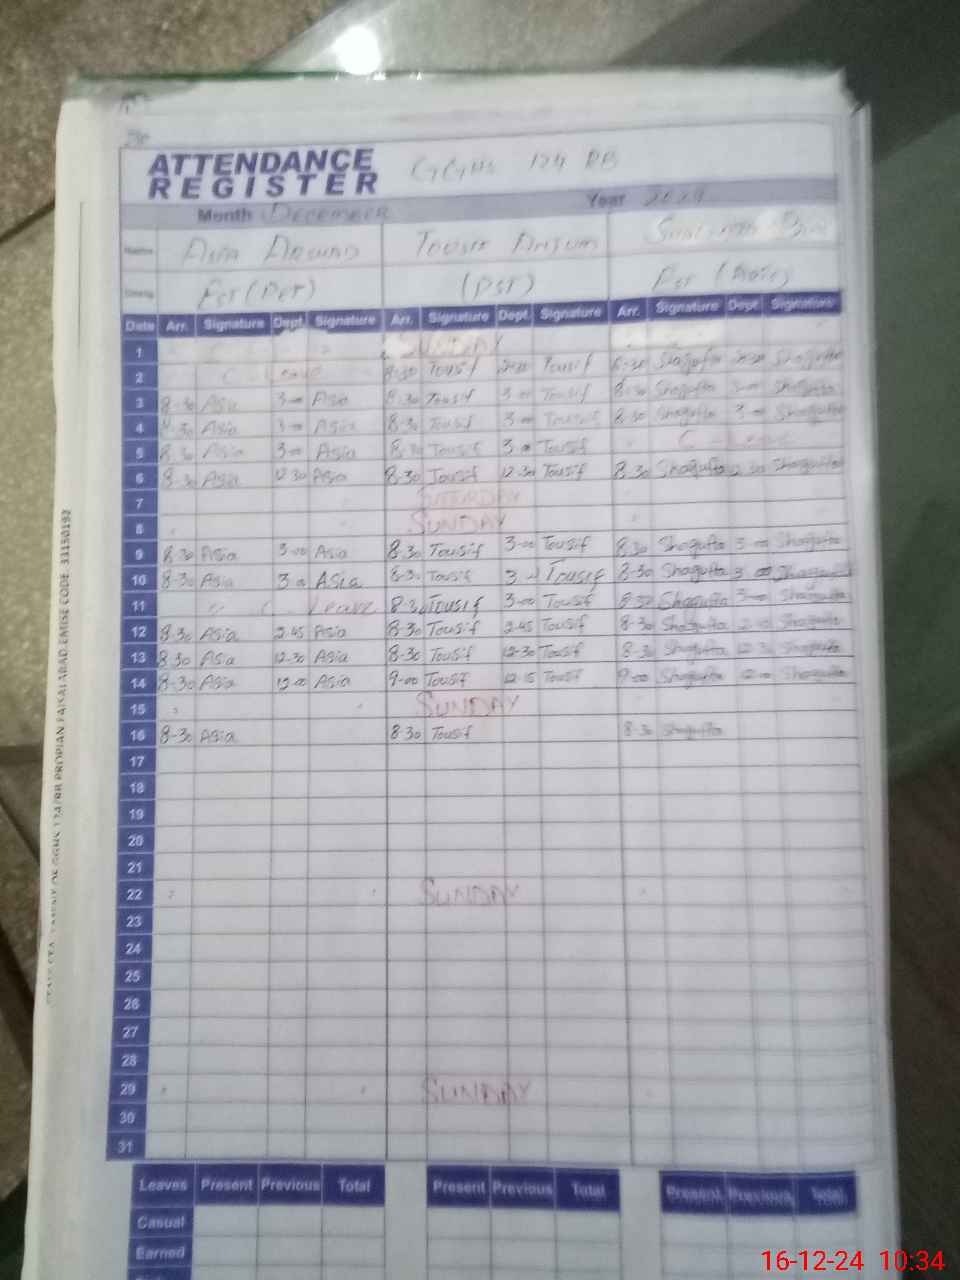 ATTENDANCE
REGISTER
GGHS 124 RB
Month DECEMBER Year 2024
Name Asia Tousif Anjum
Desig. PST (PST)
Date Arr. Signature Dept. Signature Arr. Signature Dept. Signature Arr. Signature Dept. Signature
1 SUNDAY
2 C. Leave 8-30 Tousif Tousif 8-30 Shagufta Shagufta
3 8-30 Asia 3-00 Asia 8-30 Tousif 3-00 Tousif 8-30 Shagufta 3-00 Shagufta
4 8-30 Asia 3-00 Asia 8-30 Tousif 3-00 Tousif 8-30 Shagufta 3-00 Shagufta
5 8-30 Asia 3-00 Asia 8-30 Tousif 3-00 Tousif C. Leave
6 8-30 Asia 12-30 Asia 8-30 Tousif 12-30 Tousif 8-30 Shagufta Shagufta
7 SATERDAY
8 SUNDAY
9 8-30 Asia 3-00 Asia 8-30 Tousif 3-00 Tousif 8-30 Shagufta 3-00 Shagufta
10 8-30 Asia 3-00 Asia 8-30 Tousif 3-00 Tousif 8-30 Shagufta 3-00 Shagufta
11 C. Leave 8-30 Tousif 3-00 Tousif 8-30 Shagufta 3-00 Shagufta
12 8-30 Asia 2-45 Asia 8-30 Tousif 2-45 Tousif 8-30 Shagufta Shagufta
13 8-30 Asia 12-30 Asia 8-30 Tousif 12-30 Tousif 8-30 Shagufta 12-30 Shagufta
14 8-30 Asia 12-00 Asia 9-00 Tousif 12-15 Tousif 9-00 Shagufta Shagufta
15 SUNDAY
16 8-30 Asia 8-30 Tousif 8-30 Shagufta
17
18
19
20
21
22 SUNDAY
23
24
25
26
27
28
29 SUNDAY
30
31
Leaves Present Previous Total Present Previous Total Present Previous Total
Casual
Earned
16-12-24 10:34